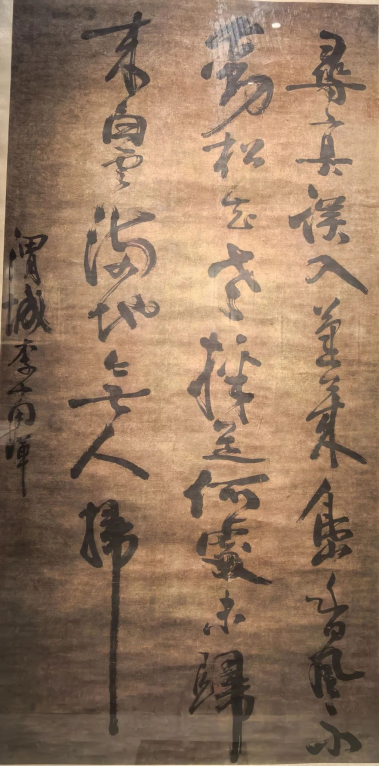 尋真誤入蓬萊島香風不
動松花老採芝何處未歸
来白雲滿地無人掃
渭城李